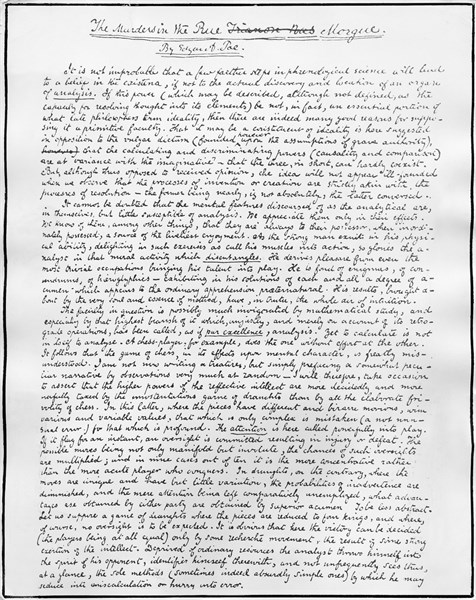 The Murders in the Rue Trianon Bas Morgue.
By Edgar A. Poe.
It is not improbable that a few farther steps in phrenological science will lead
to a belief in the existence, if not to the actual discovery and location of an organ
of analysis. If this power (which may be described, although not defined, as the
capacity for resolving thought into its elements) be not, in fact, an essential portion of
what late philosophers term ideality, then there are indeed many good reasons for suppo-
sing it a primitive faculty. That it may be a constituent of ideality is here suggested
in opposition to the vulgar dictum (founded, however, upon the assumptions of grave authority),
that the calculating and discriminating powers (causality and comparison)
are at variance with the imaginative — that the three, in short, can hardly coexist.
But, although thus opposed to received opinion, the idea will not appear ill-founded
when we observe that the processes of invention or creation are strictly akin with the
processes of resolution — the former being nearly, if not absolutely, the latter conversed.
It cannot be doubted that the mental features discoursed of as the analytical are,
in themselves, but little susceptible of analysis. We appreciate them only in their effects.
We know of them, among other things, that they are always to their possessor, when inordi-
nately possessed, a source of the liveliest enjoyment. As the strong man exults in his physi-
cal ability, delighting in such exercises as call his muscles into action, so glories the a-
nalyst in that moral activity which disentangles. He derives pleasure from even the
most trivial occupations bringing his talent into play. He is fond of enigmas, of con-
undrums, of hieroglyphics — exhibiting in his solutions of each and all a degree of a-
cumen which appears to the ordinary apprehension præternatural. His results, brought a-
bout by the very soul and essence of method, have, in truth, the whole air of intuition.
The faculty in question is possibly much invigorated by mathematical study, and
especially by that highest branch of it which, unjustly, and merely on account of its retro-
grade operations, has been called, as if par excellence, analysis. Yet to calculate is not
in itself to analyse. A chess-player, for example, does the one without effort at the other.
It follows that the game of chess, in its effects upon mental character, is greatly mis-
understood. I am not now writing a treatise, but simply prefacing a somewhat pecu-
liar narrative by observations very much at random — I will, therefore, take occasion
to assert that the higher powers of the reflective intellect are more decidedly and more
usefully tasked by the unostentatious game of draughts than by all the elaborate fri-
volity of chess. In this latter, where the pieces have different and bizarre motions, with
various and variable values, that which is only complex is mistaken (a not unu-
sual error) for that which is profound. The attention is here called powerfully into play.
If it flag for an instant, an oversight is committed resulting in injury or defeat. The
possible moves being not only manifold but involute, the chances of such oversights
are multiplied; and in nine cases out of ten it is the more concentrative rather
than the more acute player who conquers. In draughts, on the contrary, where the
moves are unique and have but little variation, the probabilities of inadvertence are
diminished, and the mere attention being left comparatively unemployed, what advan-
tages are obtained by either party are obtained by superior acumen. To be less abstract.
Let us suppose a game of draughts where the pieces are reduced to four kings, and where,
of course, no oversight is to be expected. It is obvious that here the victory can be decided
(the players being at all equal) only by some recherché movement, the result of some strong
exertion of the intellect. Deprived of ordinary resources the analyst throws himself into
the spirit of his opponent, identifies himself therewith, and not unfrequently sees thus,
at a glance, the sole methods (sometimes indeed absurdly simple ones) by which he may
seduce into miscalculation or hurry into error.